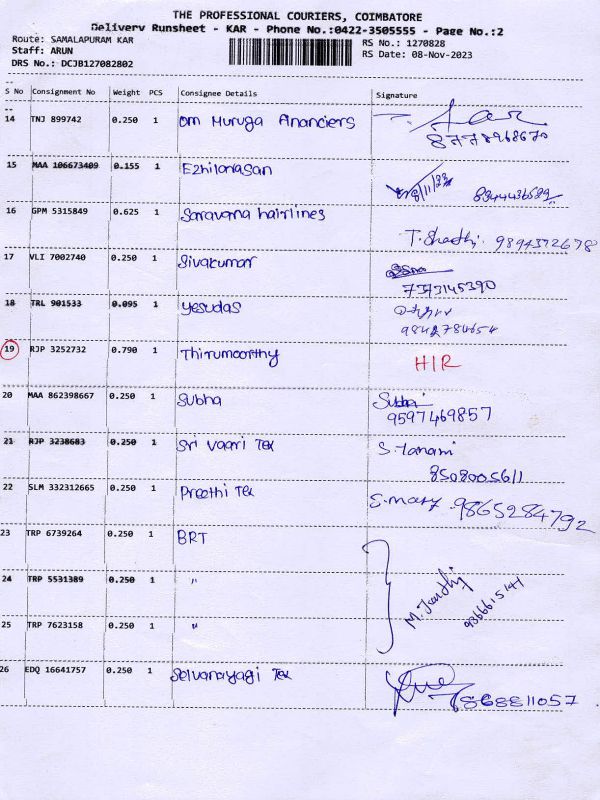 THE PROFESSIONAL COURIERS, COIMBATORE
Delivery Runsheet - KAR - Phone No.:0422-3505555 - Page No.:2
Route: SAMALAPURAM KAR
RS No.: 1270828
Staff: ARUN
RS Date: 08-Nov-2023
DRS No.: DCJB127082802
S No Consignment No Weight PCS Consignee Details Signature
14 TNJ 899742 0.250 1 Om Muruga Financiers
15 MAA 106673409 0.155 1 Ezhilarasan
8/11/23 8344436589
16 GPM 5315849 0.625 1 Saravana hairlines
T. Shanthi. 9894372678
17 VLI 7002740 0.250 1 Sivakumar
7373145390
18 TRL 901533 0.095 1 Yesudas
9842784654
19 RJP 3252732 0.790 1 Thirumoorthy H/R
20 MAA 862398667 0.250 1 Subha Subha
9597469857
21 RJP 3238683 0.250 1 Sri Vaari Tex S.
8508005611
22 SLM 332312665 0.250 1 Preethi Tex E. mary. 9865284792
23 TRP 6739264 0.250 1 BRT
24 TRP 5531389 0.250 1 "
M.
25 TRP 7623158 0.250 1 "
26 EDQ 16641757 0.250 1 Selvanayagi Tex
7868811057